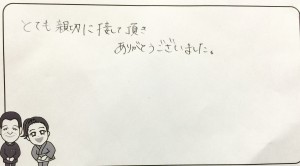 とても親切に接して頂き
ありがとうございました。